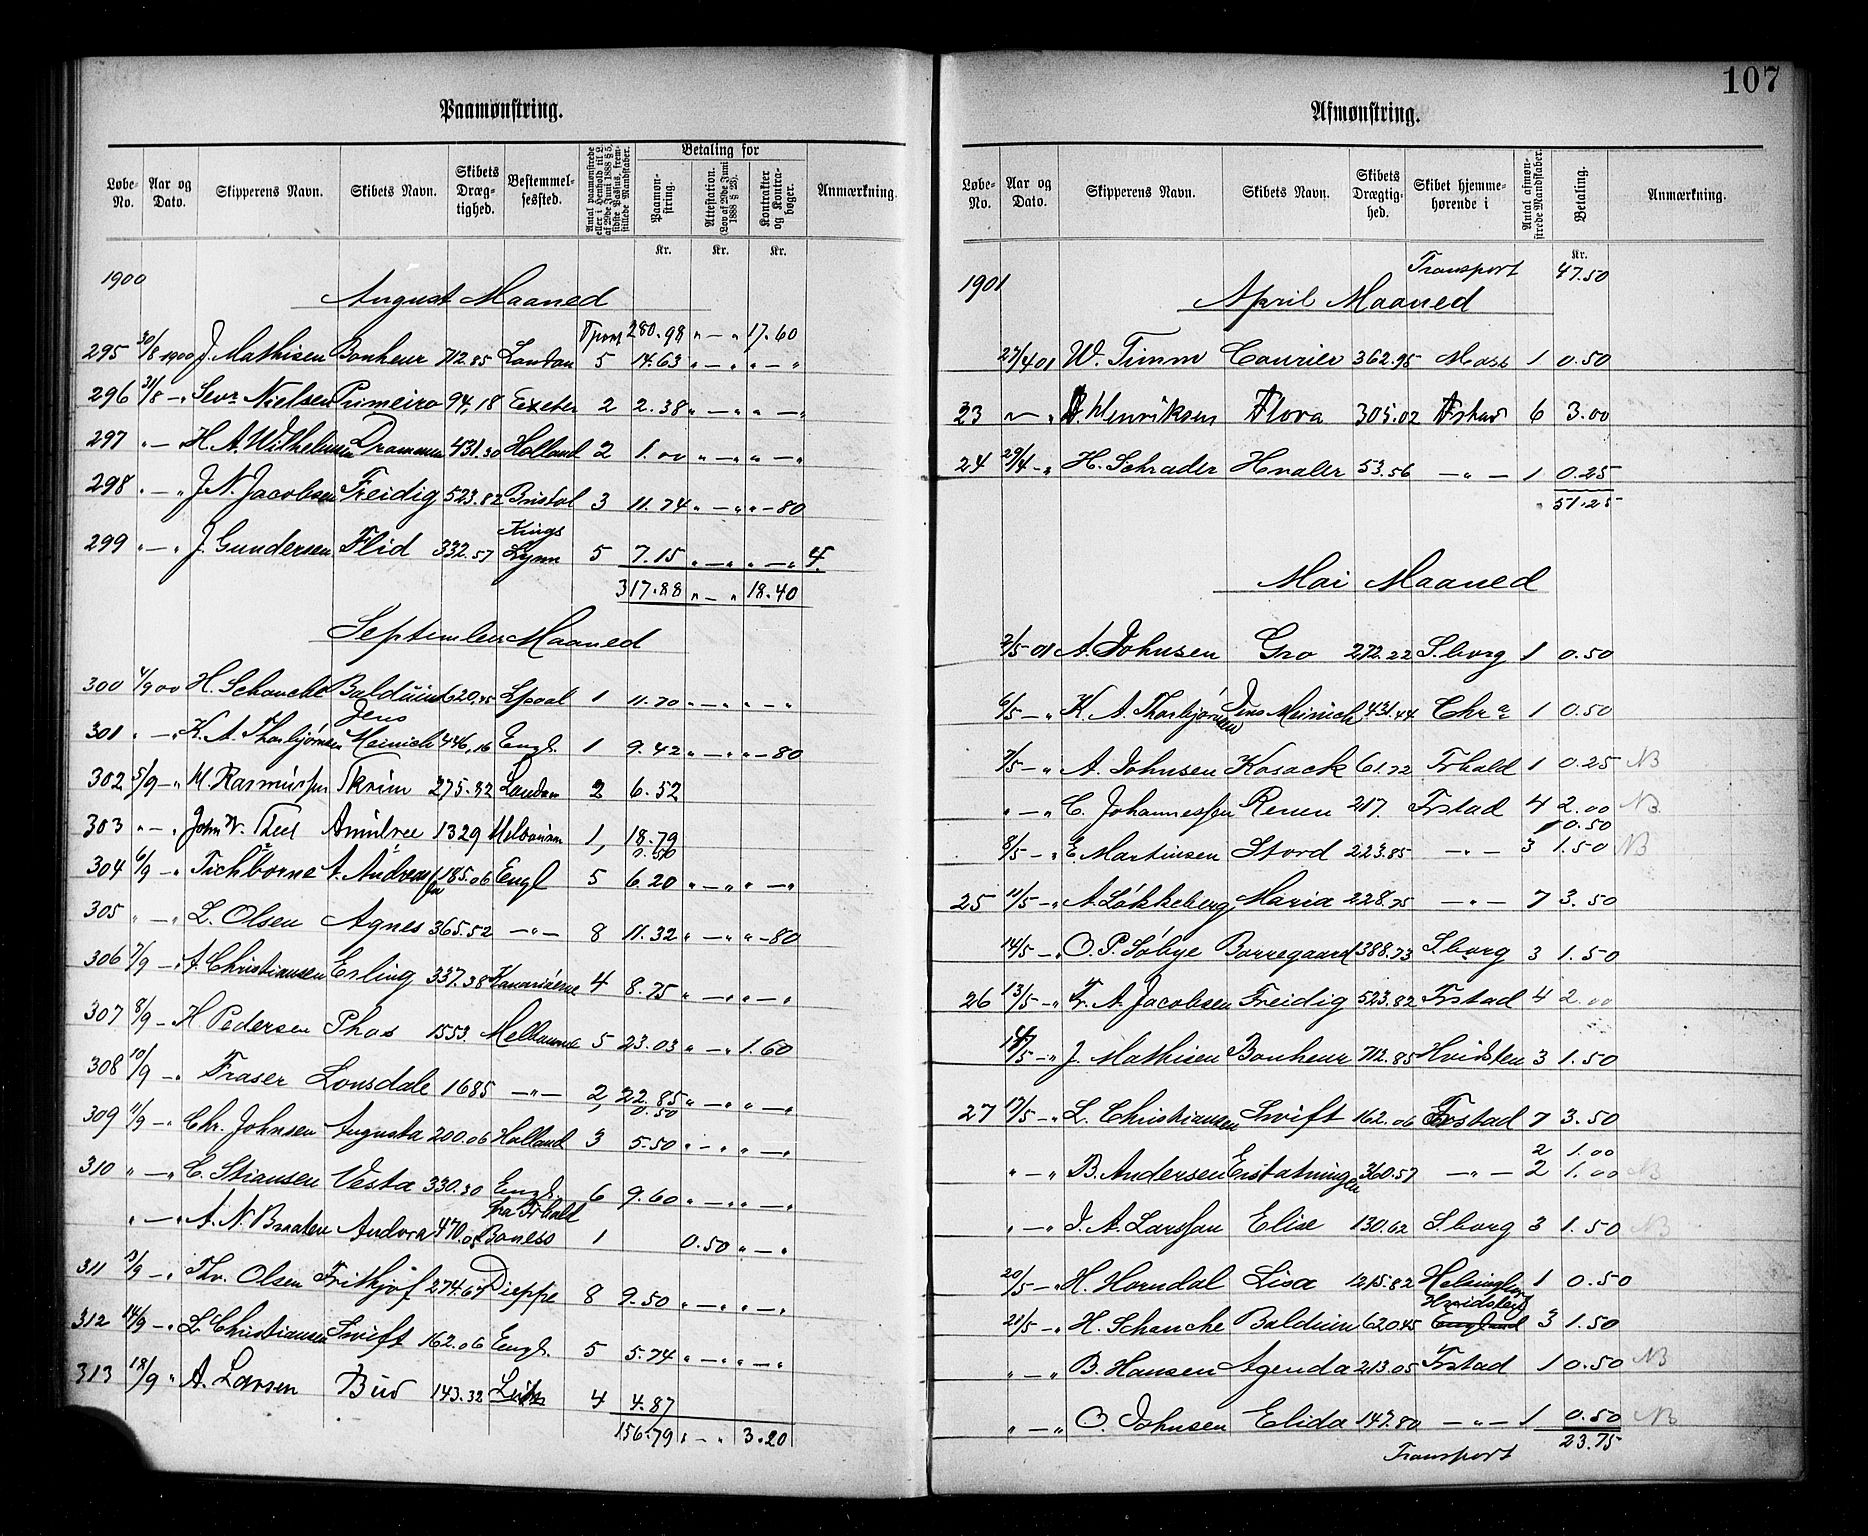 107
Paamønstring.
Løbe-No. Aar og Dato. Skipperens Navn. Skibets Navn. Skibets Drægtighed. Bestemmelsessted. Antal paamønstrede eller i Henhold til L. af 29de Juni 1888 § 5, sidste Passus, fremstillede Mandskaber. Betaling for Paamønstring. Attestation. (Lov af 29de Juni 1888 § 26). Kontrakter og Kontrabøger. Anmærkning.
Kr. Kr. Kr.
1900 August Maaned
Tpsrt 280.98 " — " 17.60
295 30/8 1900 J. Mathisen Bonheur 712.85 London 5 14.63 " — " " — "
296 31/8 — " Sevr. Nielsen Primeiro 94,18 Exeter 2 2.38 " — " " — "
297 " — H. A. Wilhelmsen Drammen 431.30 Holland 2 1.00 " — " " — "
298 " — " J. N. Jacobsen Freidig 523.82 Bristol 3 11.74 " — " " — 80
299 " — " J. Gundersen Flid 332.57 Kings Lynn 5 7.15 " — " " — "
317.88 " — " 18.40
September Maaned
300 4/9 00 H. Schanche Balduin 620,45 Lpool 1 11.70 " — " " — "
301 " — " K. A. Thorbjørnsen Jens Meinich 446,16 Engl. 1 9.42 " — " " — 80
302 5/9 — " M Rasmussen Skrim 275.82 London 2 6.52
303 " — " John W. Theel Amulree 1329 Melbourn 1, 18.79
0.50
304 6/9 — " Tichborne A. Andreassen 185.06 Engl 5 6.20 " — " " — "
305 " — " L. Olsen Agnes 365.52 — " — 8 11.32 " — " " — 80
306 7/9 — " A. Christiansen Erling 337.38 Kanariøerne 4 8.75 " — " " — "
307 8/9 — " H Pedersen Phos 1553. Melbourne 5 23.03 " — " 1.60
308 10/9 — " Fraser Lonsdale 1685 — " — 2, 22.85 " — " " — "
0.50
309 11/9 — " Chr. Johnsen Augusta 200.06 Holland 3 5.50 " — " " — "
310 " — " C. Stiansen Vesta 330.30 Engl. 6 9.60 " — " " — "
" — " A. N. Braaten Andora 470.05 fra Frhald Boness 1 0.50 " — "
311 13/9 — " Thv. Olsen Frithjof 274.64 Dieppe 8 9.50 " — " " — "
312 14/9 — " L. Christiansen Swift 162.06 Engl. 5 5.74 " — " " — "
313 18/9 " A. Larsen Bud 143.32 Leith 4 4.87
156.79 " — " 3.20
Afmønstring.
Løbe-No. Aar og Dato. Skipperens Navn. Skibets Navn. Skibets Drægtighed. Skibet hjemmehørende i Antal afmønstrede Mandskaber. Betaling. Anmærkning.
Kr.
1901 Transport 47.50
April Maaned
27/4 01 W. Timm Courier 362.95 Moss 1 0.50
23 " — " A. Henriksen Flora 305.02 Frstad 6 3.00
24 29/4 — " H. Schrader Hvaler 53.56 — " — 1 0.25
51.25
Mai Maaned
2/5 01 A. Johnsen Gro 272.22 S.borg 1 0.50
6/5 — " K. A. Thorbjørnsen Jens Meinich 431.44 Chra 1 0.50
7/5 — " A. Johnsen Kosack 61.72 Frhald 1 0.25 NB
" — " C. Johannessen Renen 217. Frstad 4 2.00 NB
1 0.50
8/5 — " E. Martinsen Stord 223.85 — " — 3 1.50 NB
25 11/5 — " A. Løkkeberg Maria 228.75 — " — 7 3.50
14/5 — " O. P. Søbye Borregaard 1388.73 S.borg 3 1.50
26 13/5 — " Fr. A. Jacobsen Freidig 523.82 Frstad 4 2.00
14/5 — " J. Mathisen Bonheur 712.85 Hvidsten 3 1.50
27 17/5 — " L. Christiansen Swift 162.06 Frstad 7 3.50
2 1.00
" — " B. Andersen Erstatningen 360.57 — " — 2 1.00 NB
" — " J. A. Larssen Elise 130.62 S.borg 3 1.50 NB
20/5 — " H. Horndal Lisa 1215.82 Helsingborg 1 0.50
21/5 — " H. Schanche Balduin 620.45 Hvidsten England 3 1.50
" — " B. Hansen Agenda 213.05 Frstad 1 0.50 NB
" — " O. Johnsen Elida 147.80 — " — 1 0.50 NB
23.75
Transport